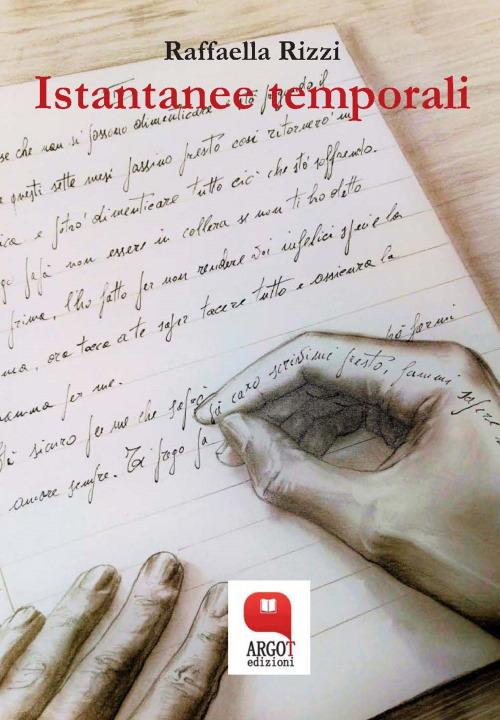 Raffaella Rizzi
Istantanee temporali
se che non si possono dimenticare
questi sette mesi passino presto così ritornerò in
e potrò dimenticare tutto ciò che stò soffrendo.
papà non essere in collera se non ti ho detto
prima, l'ho fatto per non rendere voi infelici
ora tocca a te saper tacere tutto e assicura la
mamma per me.
sicuro per me che saprò
papà caro scrivimi presto, fammi sapere
amore sempre. Ti prego
ARGOT
edizioni